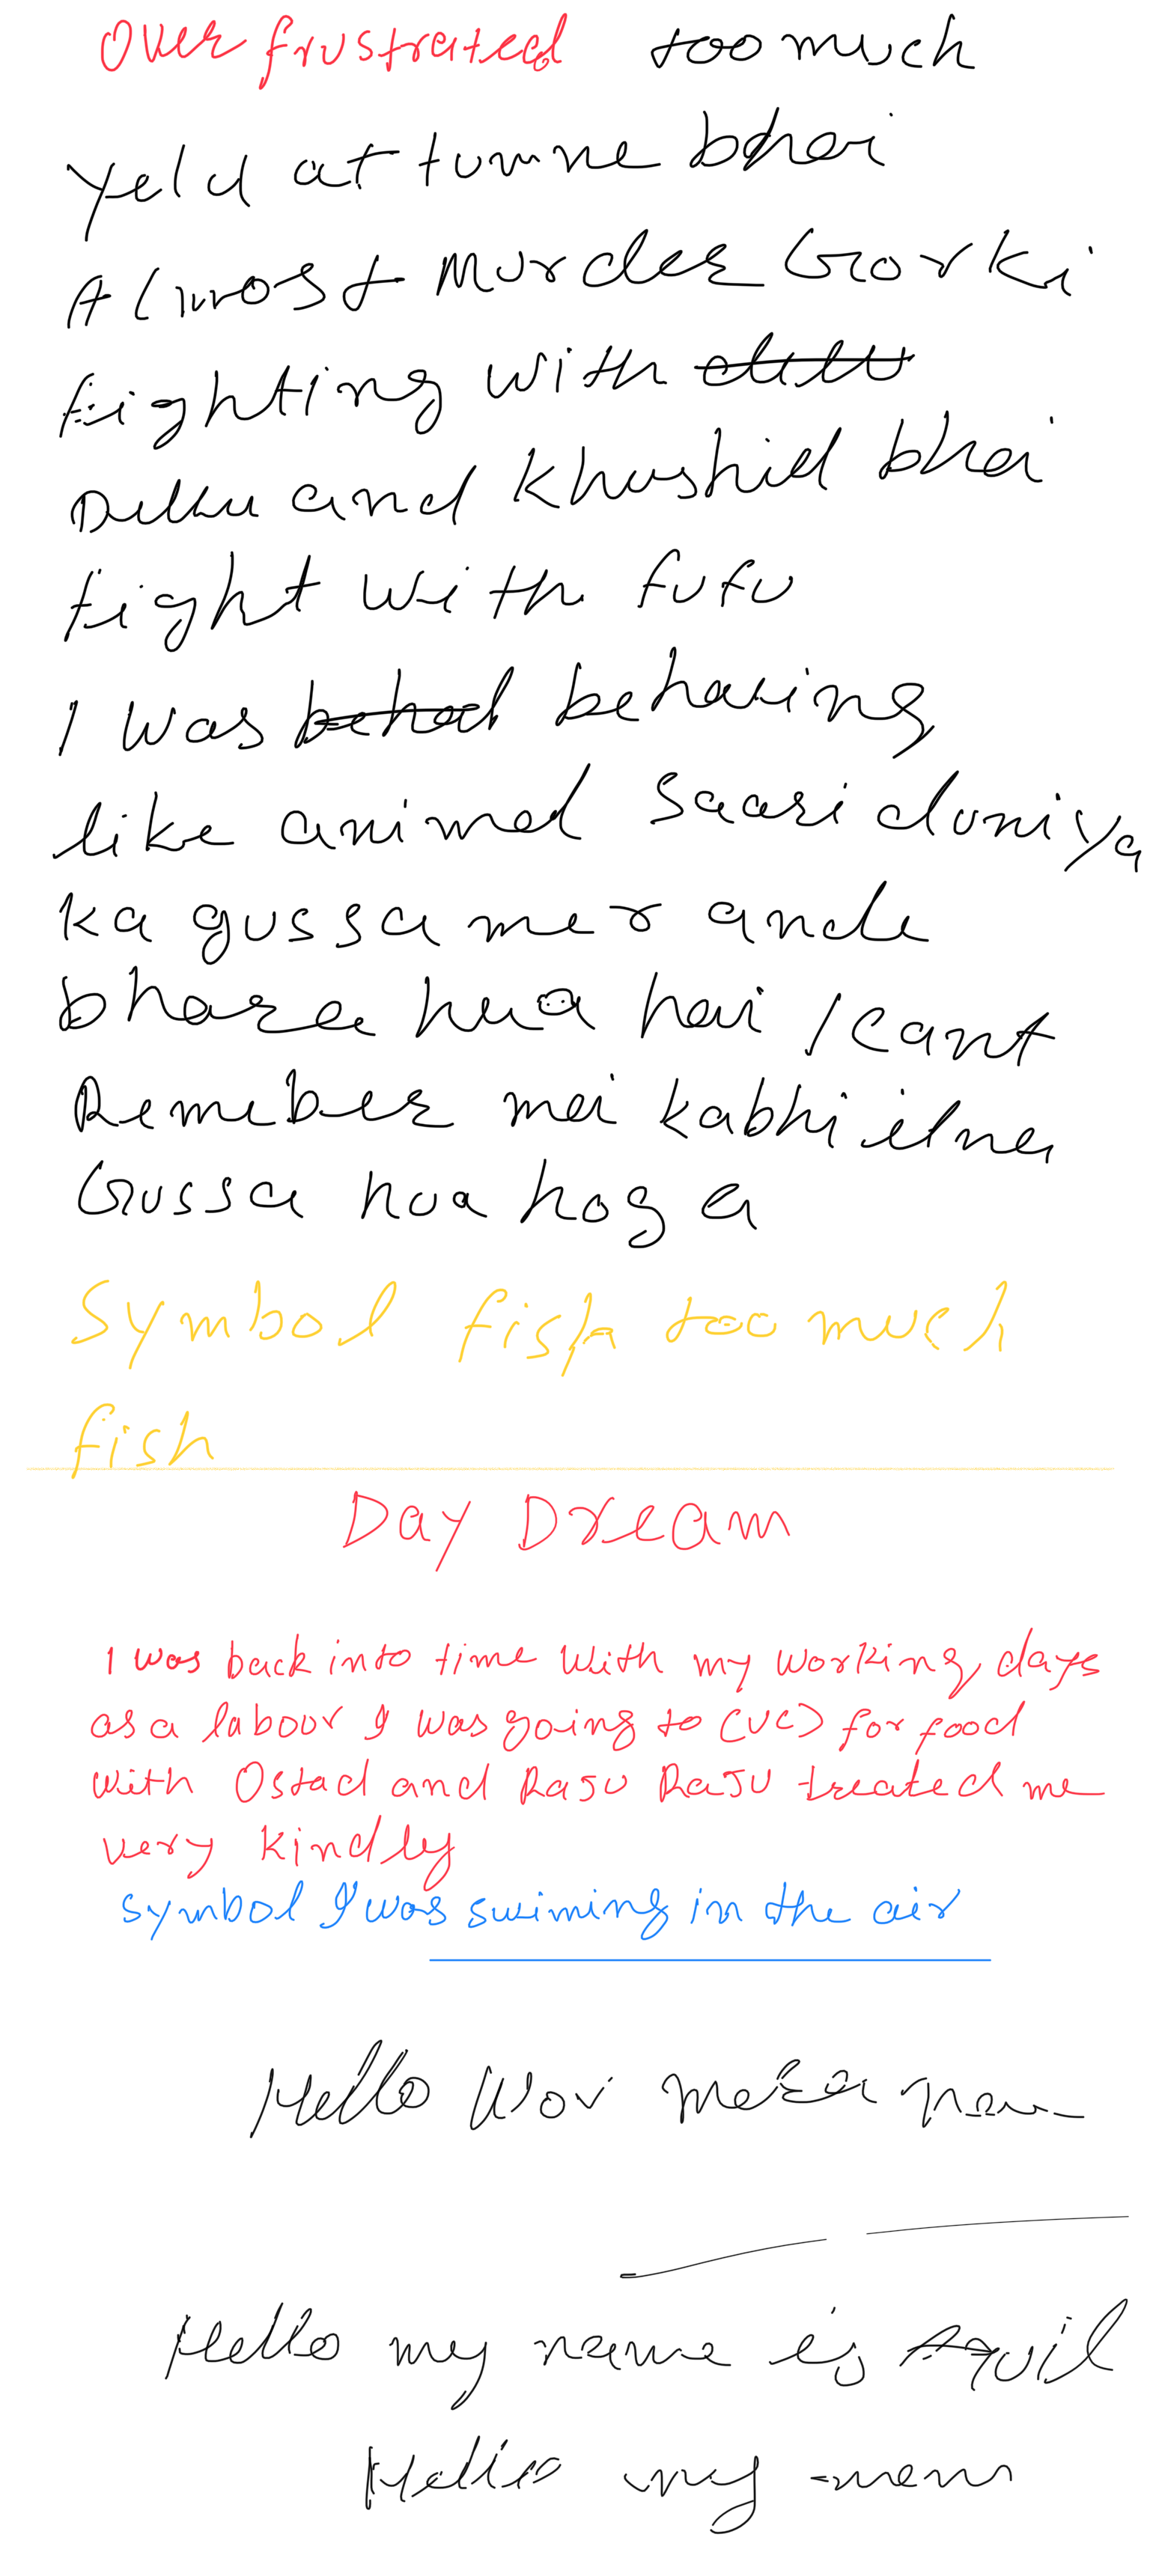 Over frustrated too much
Yeld at tumne bhai
Almost Murder Gorki
Fighting with
Dullu and Khushid bhai
fight with fufu
I was behaving
like animal Saari duniya
ka gussa mer ande
bhara hua hai I cant
Remeber mei kabhi itna
Gussa hua hoga
Symbol fish too much
fish
Day Dream
I was back into time with my working days
as a labour I was going to (UC) for food
with Ostad and Raju Raju treated me
very kindly
symbol I was swiming in the air
Hello Wor mera
Hello my name is Aquil
Hello my